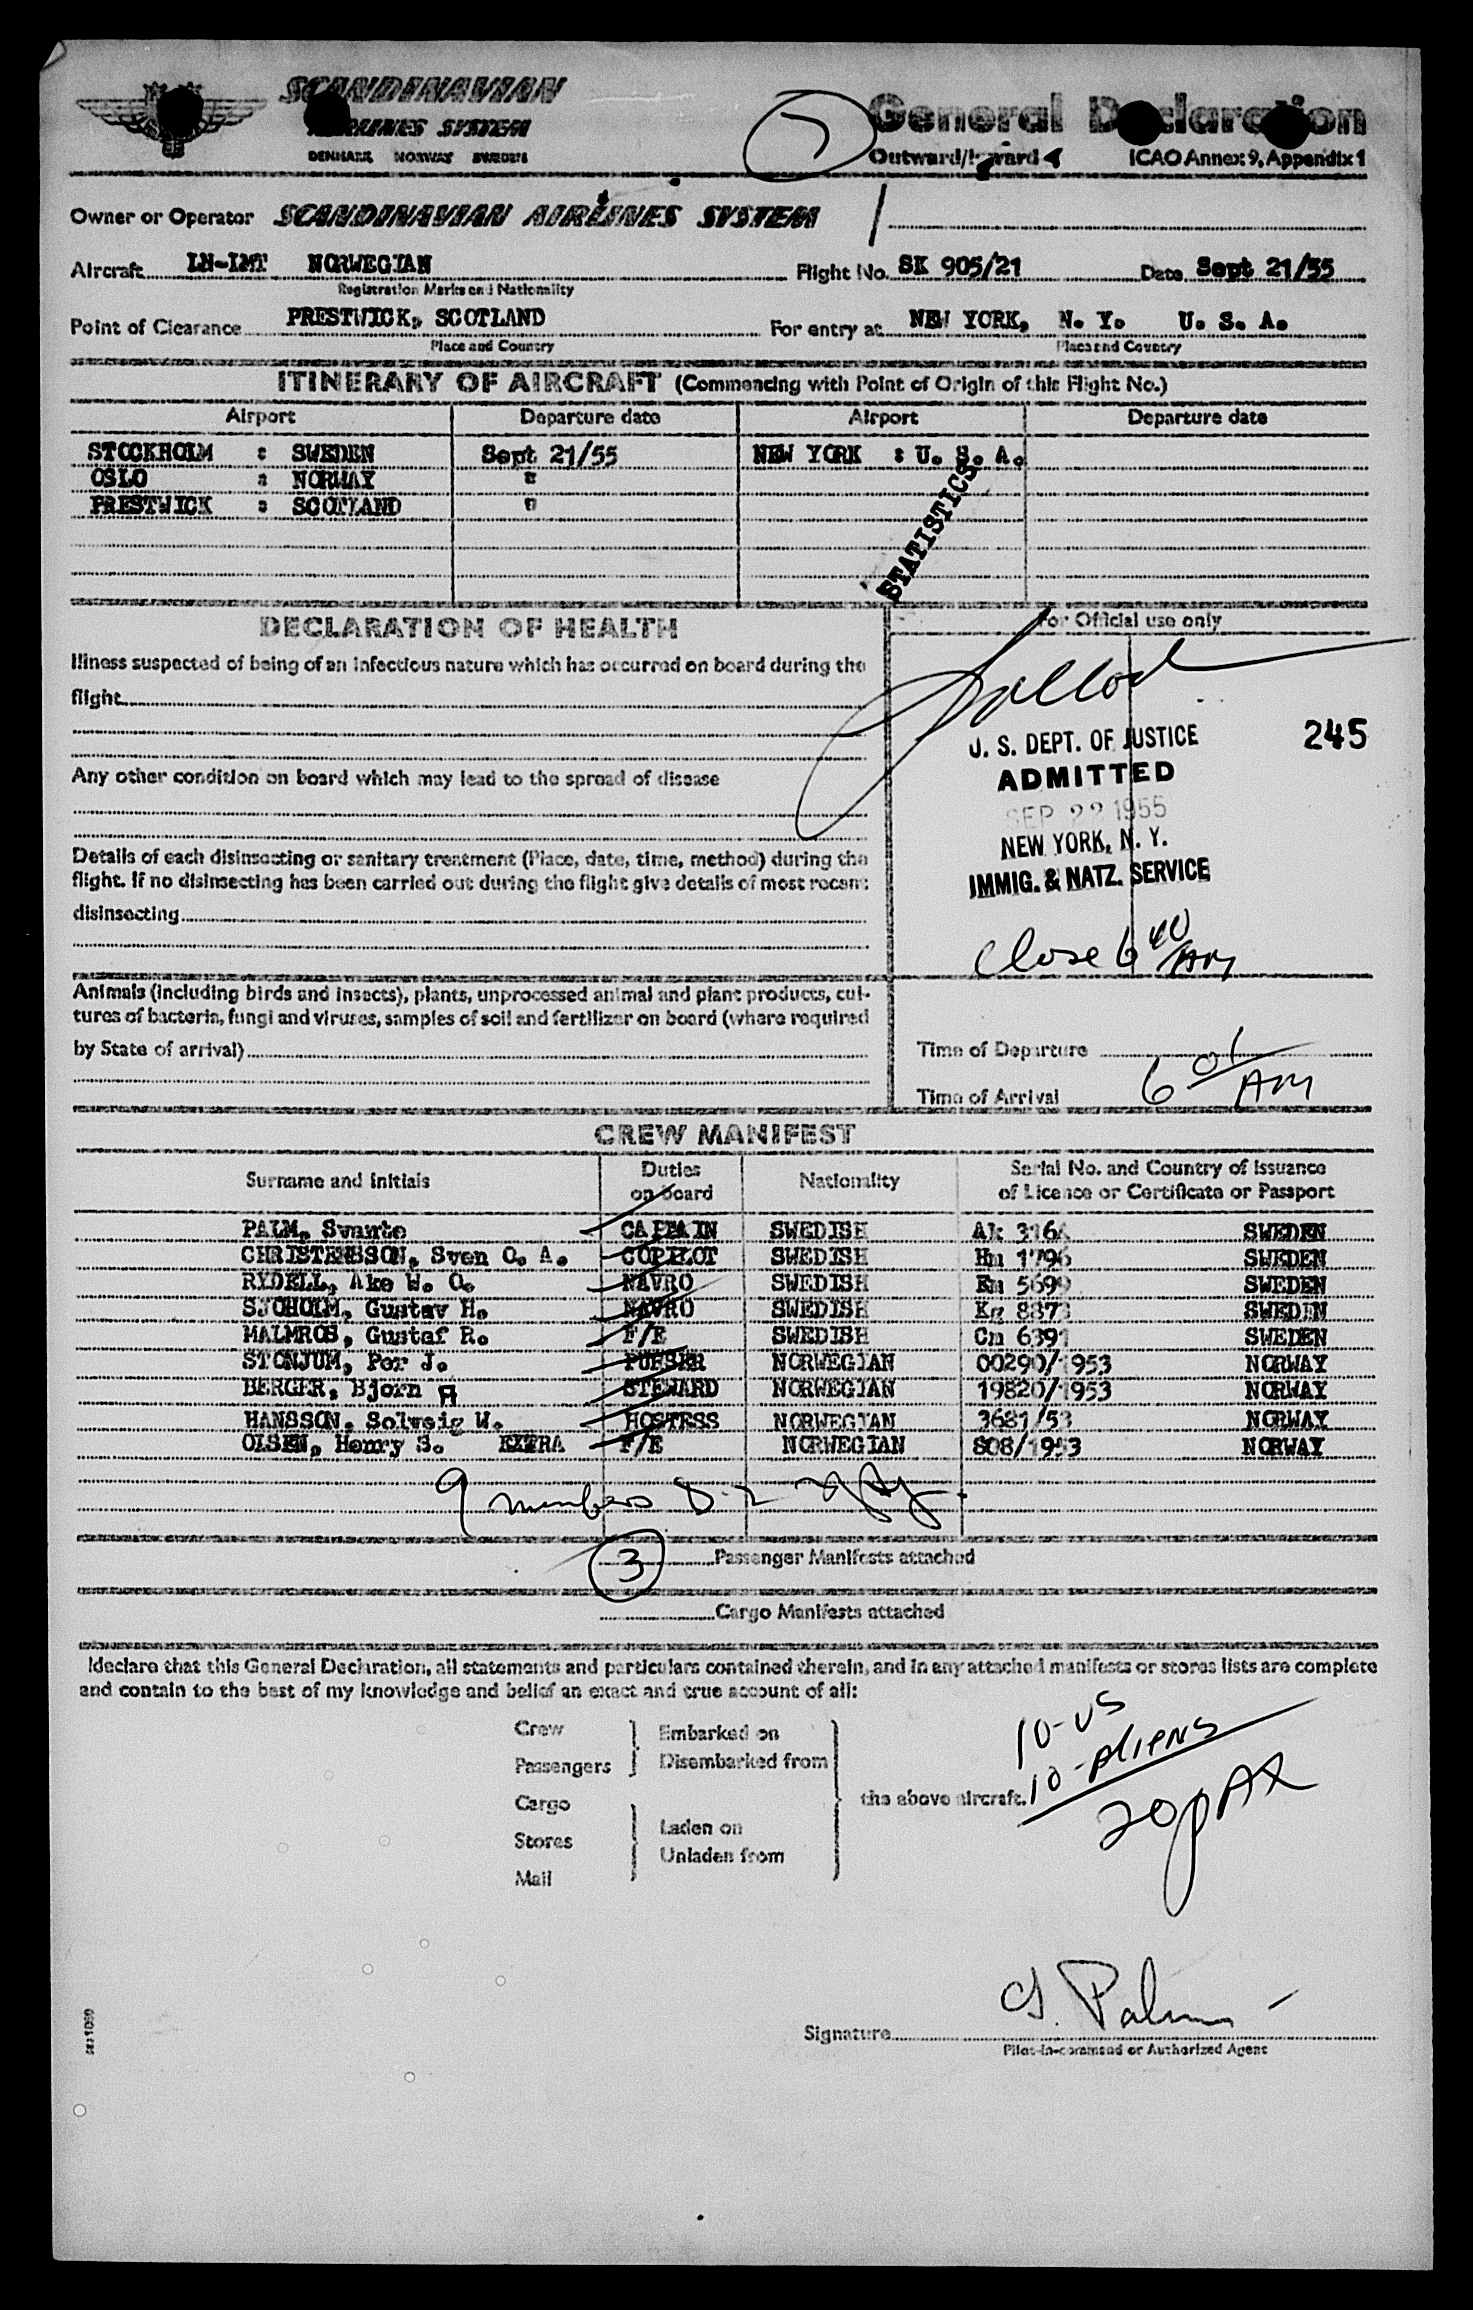 SCANDINAVIAN
AIRLINES SYSTEM
DENMARK NORWAY SWEDEN
General Declaration
Outward/Inward
ICAO Annex 9, Appendix 1
Owner or Operator SCANDINAVIAN AIRLINES SYSTEM
Aircraft LN-LMT NORWEGIAN Flight No. SK 905/21 Date Sept 21/55
Registration Marks and Nationality
Point of Clearance PRESTWICK, SCOTLAND For entry at NEW YORK, N. Y. U. S. A.
Place and Country Place and Country
ITINERARY OF AIRCRAFT (Commencing with Point of Origin of this Flight No.)
Airport Departure date Airport Departure date
STOCKHOLM : SWEDEN Sept 21/55 NEW YORK : U. S. A.
OSLO : NORWAY "
PRESTWICK : SCOTLAND "
STATISTICS
DECLARATION OF HEALTH
For Official use only
Illness suspected of being of an infectious nature which has occurred on board during the
flight
U. S. DEPT. OF JUSTICE
245
ADMITTED
SEP 22 1955
NEW YORK, N. Y.
IMMIG. & NATZ. SERVICE
Close 6 40 AM
Any other condition on board which may lead to the spread of disease
Details of each disinsecting or sanitary treatment (Place, date, time, method) during the
flight. If no disinsecting has been carried out during the flight give details of most recent
disinsecting
Animals (including birds and insects), plants, unprocessed animal and plant products, cul-
tures of bacteria, fungi and viruses, samples of soil and fertilizer on board (where required
by State of arrival)
Time of Departure
Time of Arrival 6 01 AM
CREW MANIFEST
Surname and initials Duties on board Nationality Serial No. and Country of Issuance
of Licence or Certificate or Passport
PALM, Svante CAPTAIN SWEDISH SWEDEN
CHRISTENSSON, Sven O. A. COPILOT SWEDISH 1796 SWEDEN
RYDELL, Ake W. O. NAVRO SWEDISH 5699 SWEDEN
SJOHOLM, Gustav H. NAVRO SWEDISH SWEDEN
MALMROS, Gustaf R. F/E SWEDISH Cm 6391 SWEDEN
STONJUM, Per J. PURSER NORWEGIAN 00290/1953 NORWAY
BERGER, Bjorn A STEWARD NORWEGIAN 19820/1953 NORWAY
HANSSON, Solveig W. HOSTESS NORWEGIAN 3681/53 NORWAY
OLSEN, Henry S. EXTRA F/E NORWEGIAN 808/1953 NORWAY
9 members
3 Passenger Manifests attached
Cargo Manifests attached
I declare that this General Declaration, all statements and particulars contained therein, and in any attached manifests or stores lists are complete
and contain to the best of my knowledge and belief an exact and true account of all:
Crew
Passengers
Embarked on
Disembarked from
Cargo
Stores
Mail
Laden on
Unladen from
the above aircraft.
10-US
10-Aliens
20 pAX
Signature S. Palm
Pilot-in-command or Authorized Agent